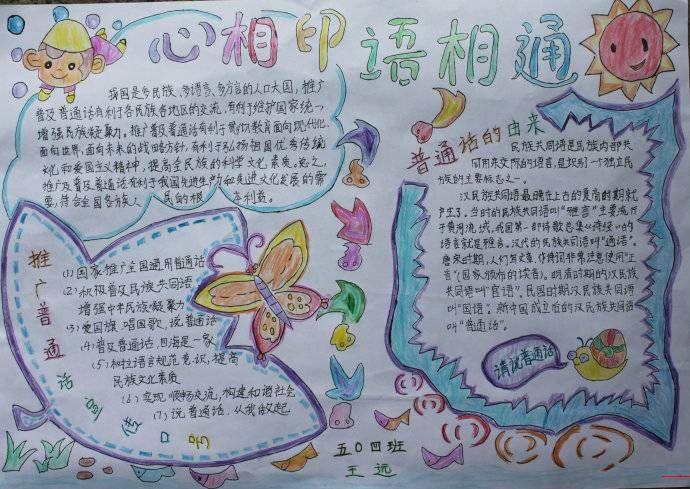 心相印 语相通
我国是多民族、多语言、多方言的人口大国，推广
普及普通话有利于各民族各地区的交流，有利于维护国家统一
增强民族凝聚力。推广普及普通话有利于贯彻教育面向现代化，
面向世界，面向未来的战略方针，有利于弘扬祖国优秀传统
文化和爱国主义精神，提高全民族的科学文化素质。总之，
推广及普及普通话有利于我国先进生产力和先进文化发展的需
要，符合全国各族人民的根本利益。
推广普通话宣传口号
(1) 国家推广全国通用普通话
(2) 积极普及民族共同语
增强中华民族凝聚力
(3) 爱国旗，唱国歌，说普通话
(4) 普及普通话，四海是一家
(5) 树立语言规范意识，提高
民族文化素质
(6) 实现顺畅交流，构建和谐社会
(7) 说普通话，从我做起
普通话的由来
民族共同语是民族内部共
同用来交际的语言，是识别一个独立民
族的主要标志之一。
汉民族共同语最晚在上古的夏商时期就
产生了。当时的民族共同语叫“雅言”主要流行
于黄河流域，我国第一部诗歌总集《诗经》的
语言就是雅言。汉代的民族共同语叫“通语”。
唐宋时期，人们写文章、作诗词非常注意使用“正
音”（国家颁布的读音）。明清时期的汉民族
共同语叫“官话”。民国时期汉民族共同语
叫“国语”。新中国成立后的汉民族共同语
叫“普通话”。
请说普通话
五〇四班
王远